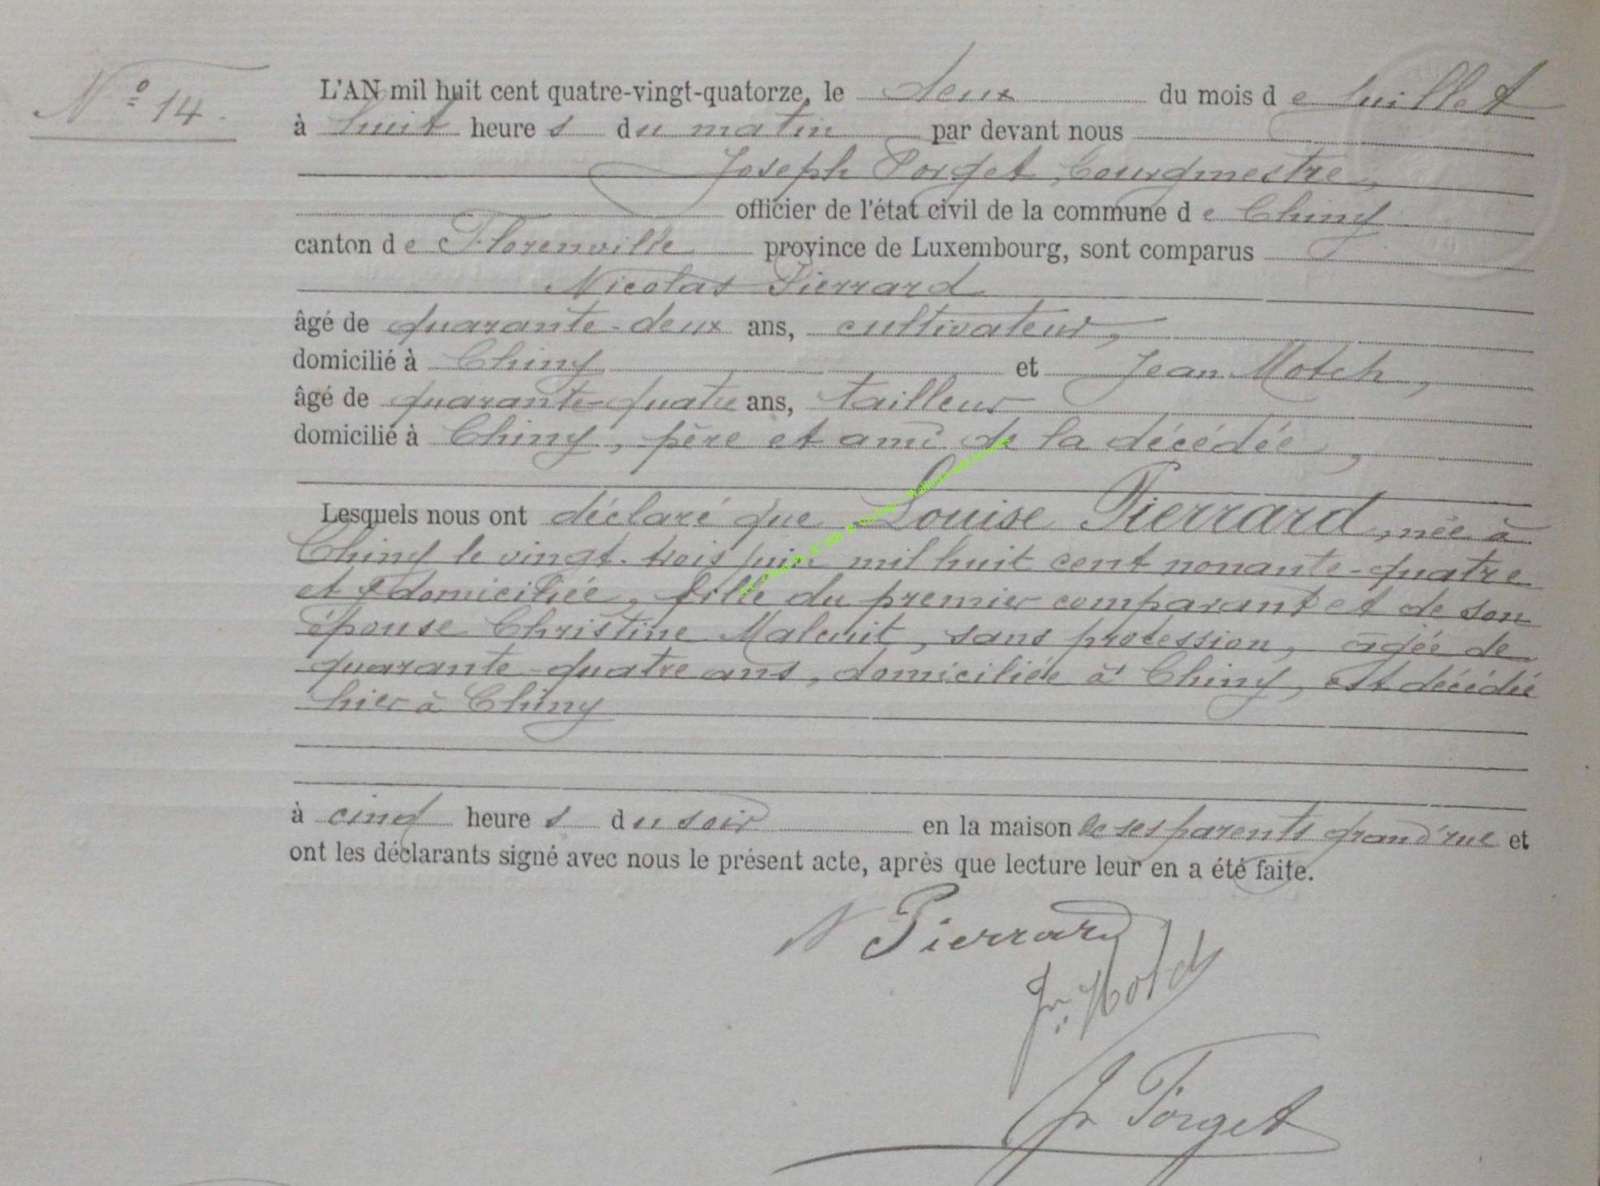 Nº 14.
L'AN mil huit cent quatre-vingt-quatorze, le deux du mois de Juillet
à huit heures du matin par devant nous
Joseph Forget, bourgmestre,
officier de l'état civil de la commune de Chiny
canton de Florenville province de Luxembourg, sont comparus
Nicolas Pierrard
âgé de quarante-deux ans, cultivateur,
domicilié à Chiny et Jean Motch,
âgé de quarante-quatre ans, tailleur
domicilié à Chiny, père et ami de la décédée,
Lesquels nous ont déclaré que Louise Pierrard, née à
Chiny le vingt-trois juin mil huit cent nonante-quatre
et y domiciliée, fille du premier comparant et de son
épouse Christine Malcuit, sans profession, âgée de
quarante-quatre ans, domiciliée à Chiny, est décédée
hier à Chiny
à cinq heures du soir en la maison de ses parents grand'rue et
ont les déclarants signé avec nous le présent acte, après que lecture leur en a été faite.
N Pierrard
Jn Motch
Jh Forget